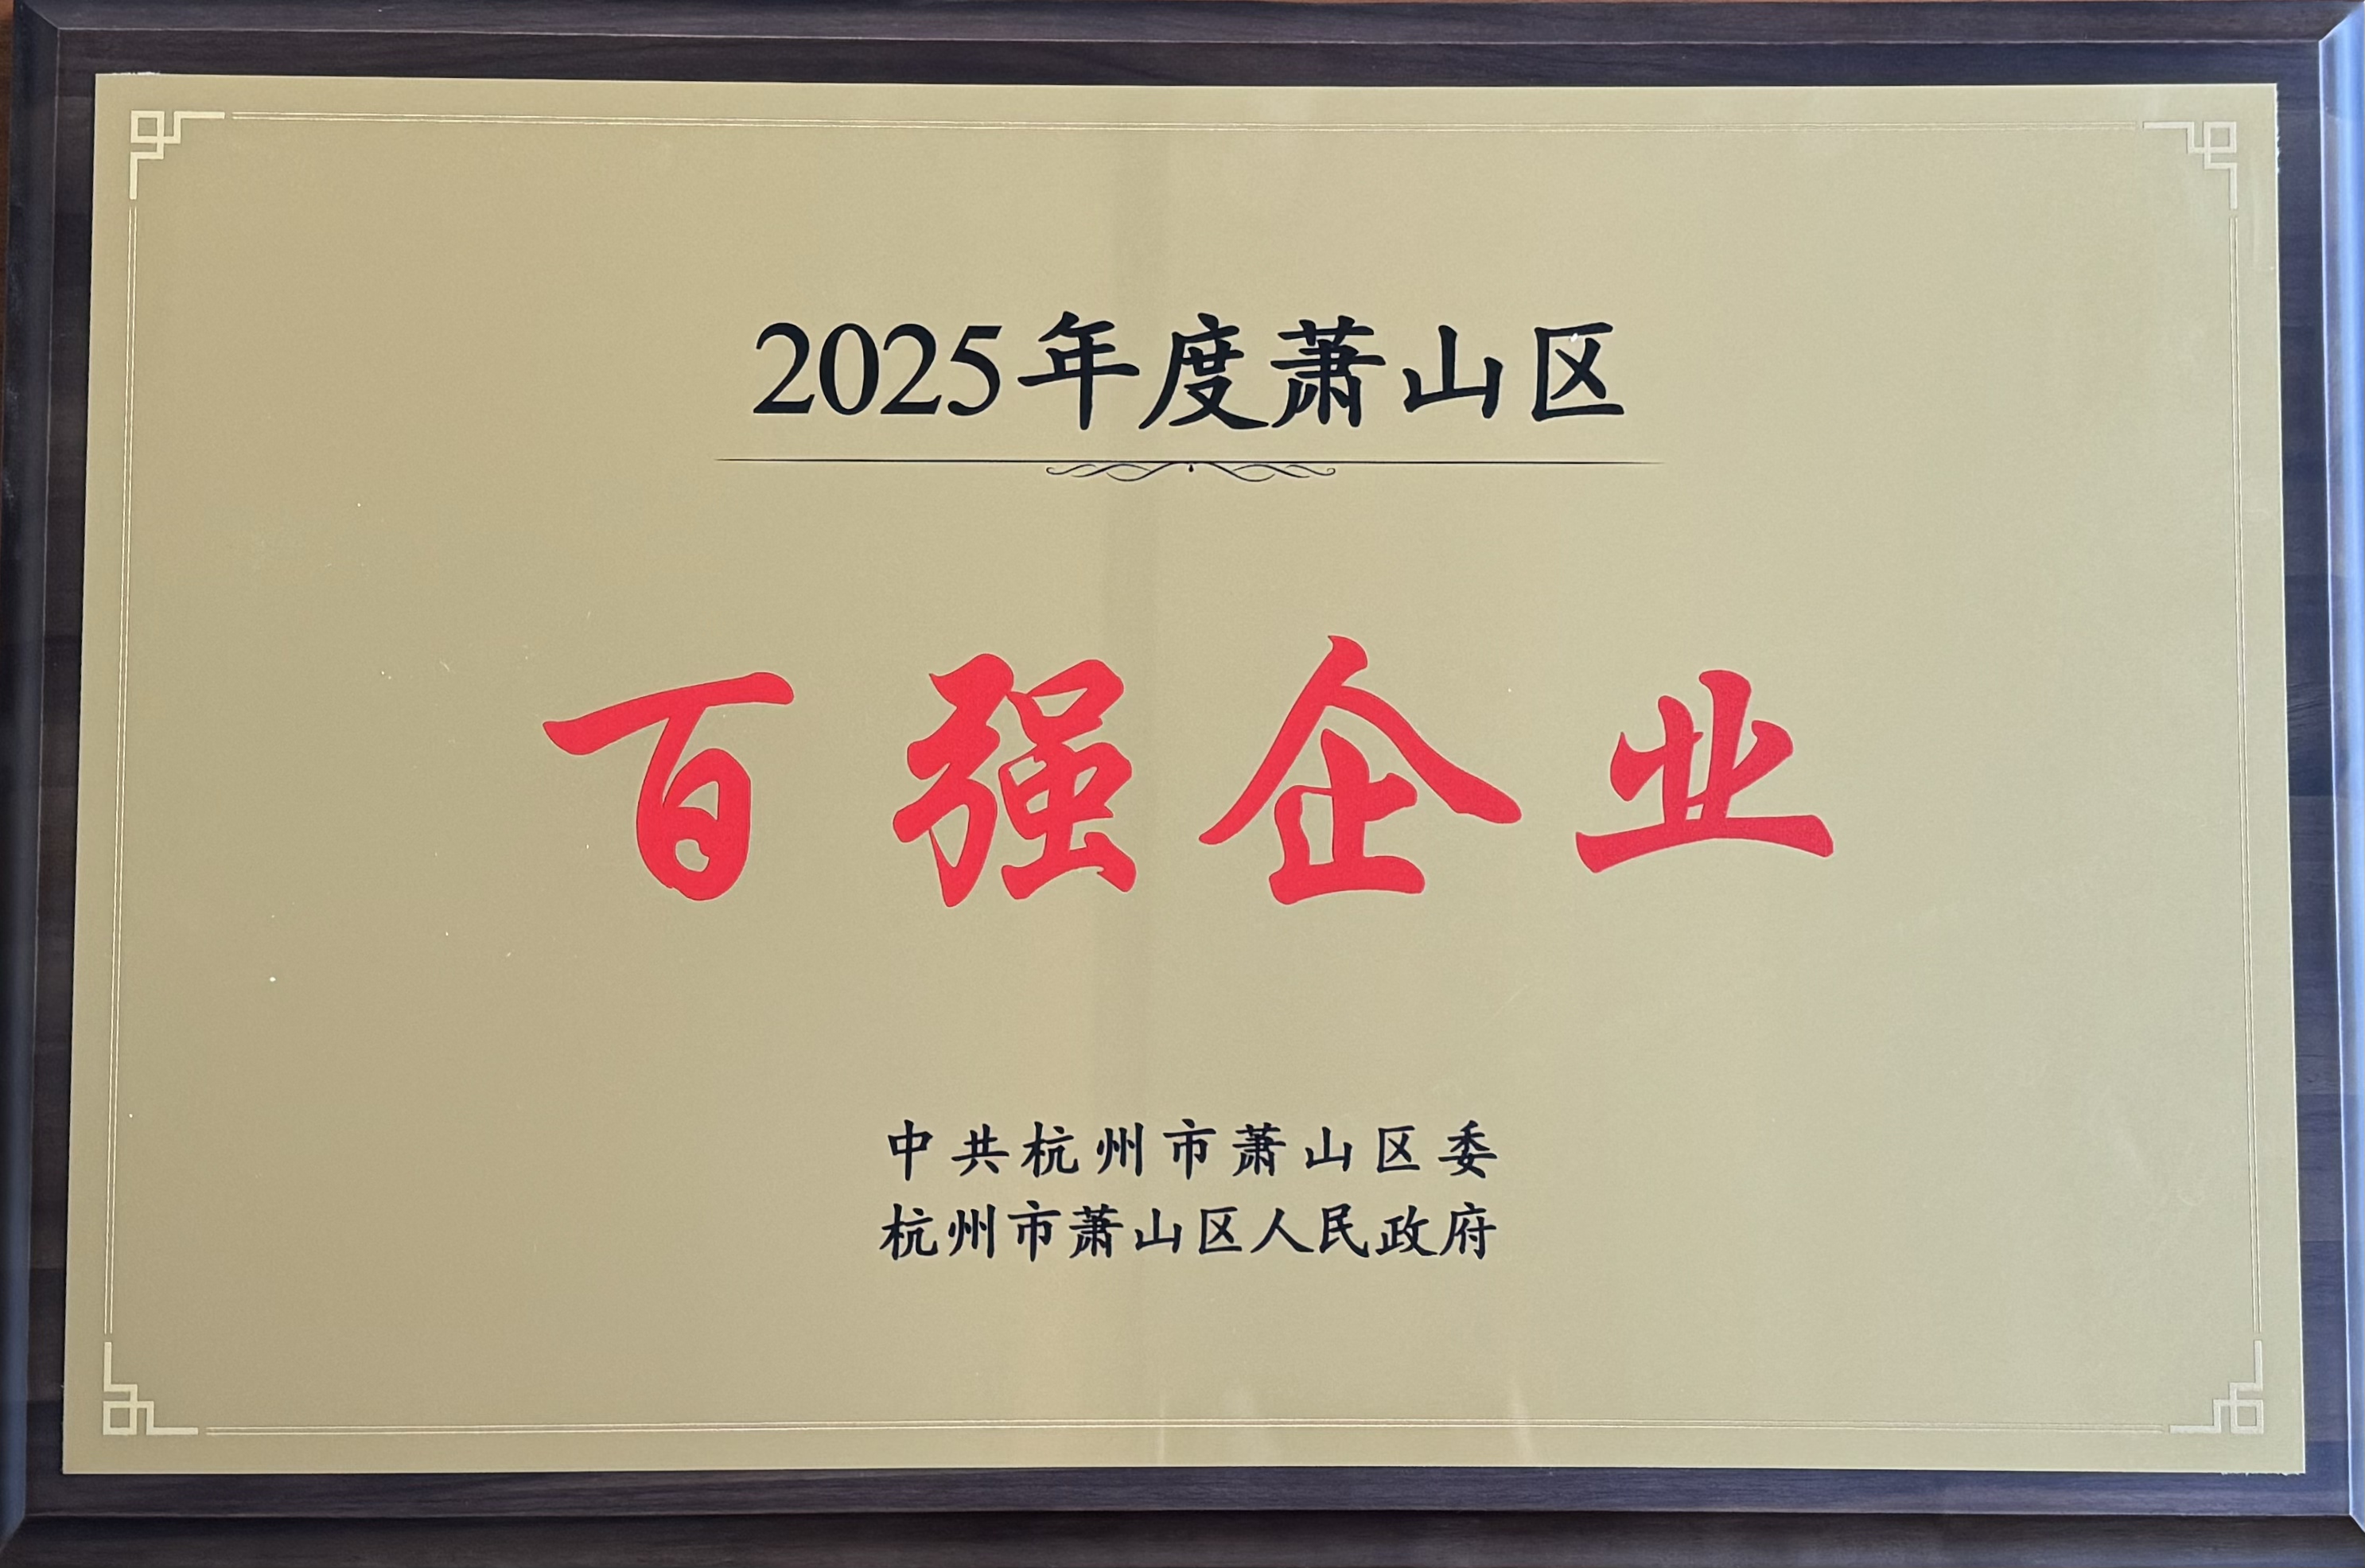 2025年度萧山区
百强企业
中共杭州市萧山区委
杭州市萧山区人民政府